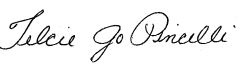 Telcie Jo Pincelli